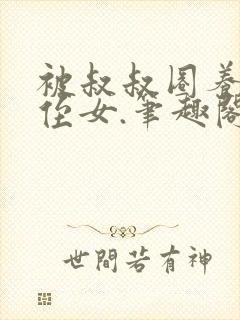 被叔叔圈养
侄女.笔趣阁
世間若有神